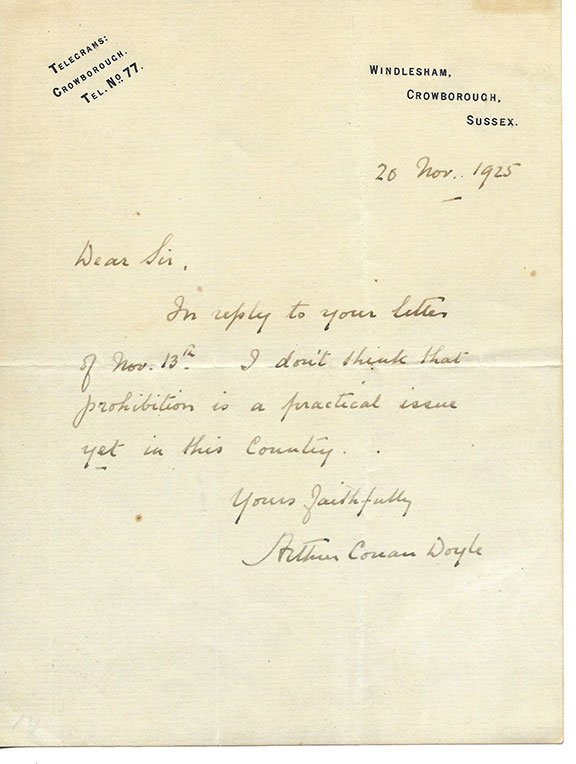 TELEGRAMS:
CROWBOROUGH.
TEL. No 77.
WINDLESHAM,
CROWBOROUGH,
SUSSEX.
20 Nov. 1925
Dear Sir,
In reply to your letter
of Nov. 13th. I don't think that
prohibition is a practical issue
yet in this Country.
Yours faithfully
Arthur Conan Doyle